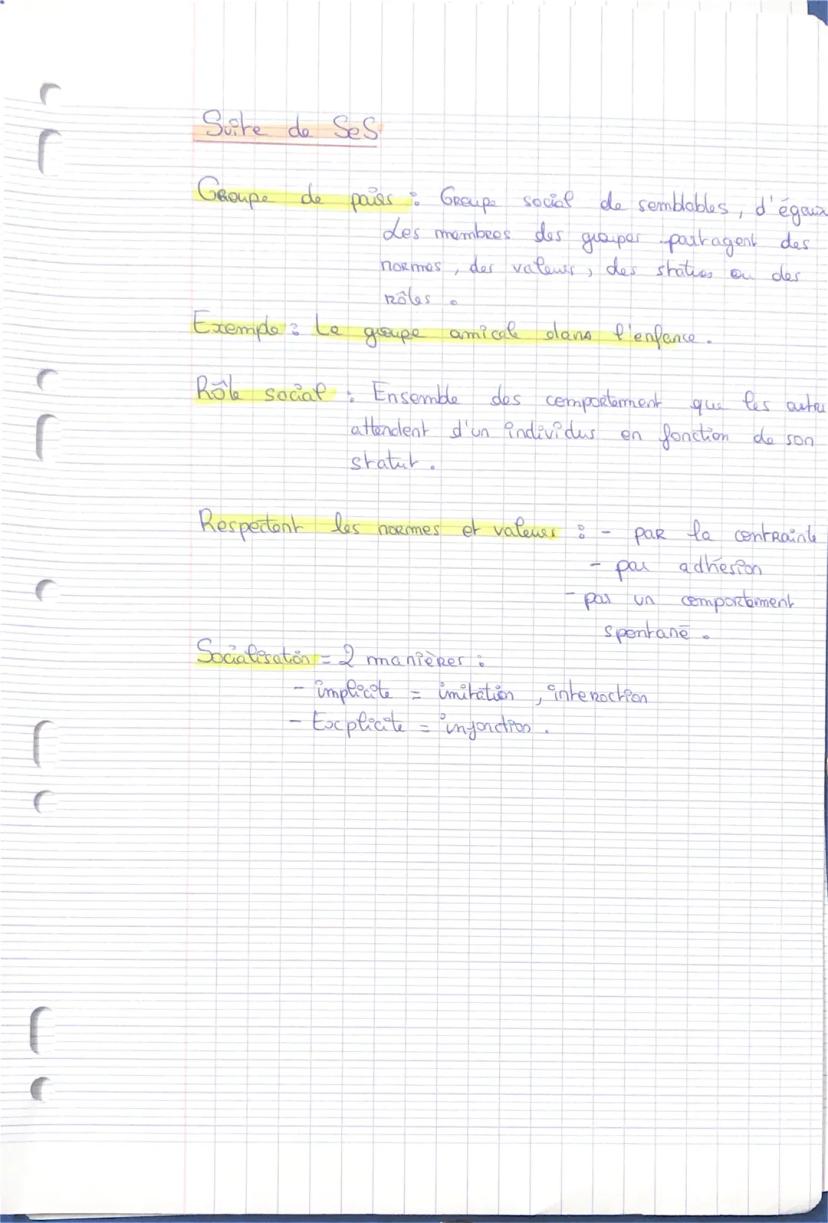 Suite de SeS
Groupe de pairs : Groupe social de semblables, d'égaux
Les membres des groupes partagent des
normes, des valeurs, des status ou des
rôles.
Exemple : Le groupe amicale dans l'enfance.
Rôle social : Ensemble des comportement que les autre
attendent d'un individus en fonction de son
statut.
Respectent les normes et valeurs : - par la contrainte
- par adhésion
- par un comportement
spontané.
Socialisation = 2 manières :
- implicite = imitation, interaction
- Explicite = injonction.